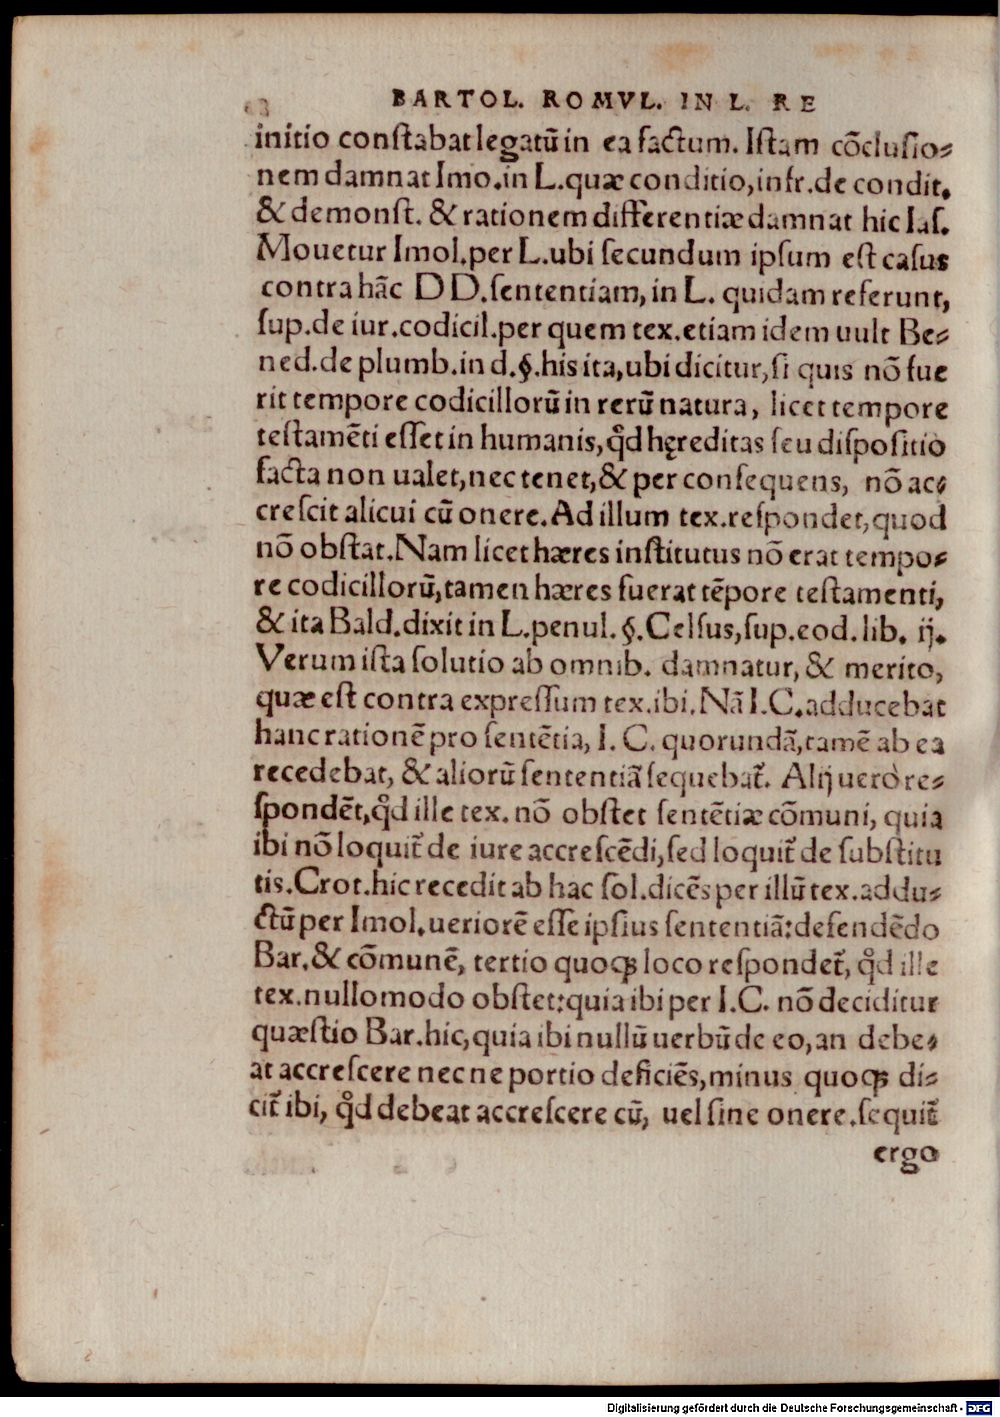 BARTOL. ROMVL. IN L. RE
initio conſtabat legatū in ea factum. Iſtam cōcluſio-
nem damnat Imo. in L. quæ conditio, infr. de condit.
& demonſt. & rationem differentiæ damnat hic Iaſ.
Mouetur Imol. per L. ubi ſecundum ipſum eſt caſus
contra hāc DD. ſententiam, in L. quidam referunt,
ſup. de iur. codicil. per quem tex. etiam idem uult Be-
ned. de plumb. in d. §. his ita, ubi dicitur, ſi quis nō fue
rit tempore codicillorū in rerū natura, licet tempore
teſtamēti eſſet in humanis, qd̓ hęreditas ſeu diſpoſitio
facta non ualet, nec tenet, & per conſequens, nō ac-
creſcit alicui cū onere. Ad illum tex. reſpondet, quod
nō obſtat. Nam licet hæres inſtitutus nō erat tempo-
re codicillorū, tamen hæres fuerat tēpore teſtamenti,
& ita Bald. dixit in L. penul. §. Celſus, ſup. eod. lib. ij.
Verum iſta ſolutio ab omnib. damnatur, & merito,
quæ eſt contra expreſſum tex. ibi. Nā I.C. adducebat
hanc rationē pro ſentētia, I. C. quorundā, tamē ab ea
recedebat, & aliorū ſententiā ſequebat᷑. Alij uerò re-
ſpondēt, qd̓ ille tex. nō obſtet ſentētiæ cōmuni, quia
ibi nō loquit᷑ de iure accreſcēdi, ſed loquit᷑ de ſubſtitu
tis. Crot. hic recedit ab hac ſol. dicēs per illū tex. addu-
ctū per Imol. ueriorē eſſe ipſius ſententiā: defendēdo
Bar. & cōmunē, tertio quoqꝫ loco reſpondet᷑, qd̓ ille
tex. nullo modo obſtet: quia ibi per I.C. nō deciditur
quæſtio Bar. hic, quia ibi nullū uerbū de eo, an debe-
at accreſcere nec ne portio deficiēs, minus quoqꝫ di-
cit᷑ ibi, qd̓ debeat accreſcere cū, uel ſine onere. ſequit᷑
ergo
Digitalisierung gefördert durch die Deutsche Forschungsgemeinschaft - DFG